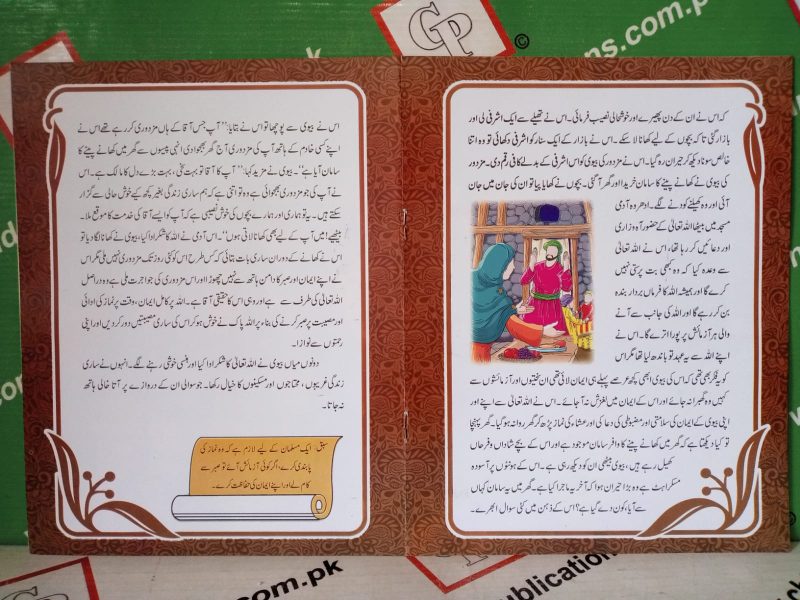 کہ اس نے ان کے دن پھیرے اور خوشحالی نصیب فرمائی۔ اس نے تھیلے سے ایک اشرفی لی اور
بازار گئی تا کہ بچوں کے لیے کھانا لا سکے۔ اس نے بازار کے ایک سنار کو اشرفی دکھائی تو وہ اتنا
خالص سونا دیکھ کر حیران رہ گیا۔ اس نے مزدور کی بیوی کو اس اشرفی کے بدلے کافی رقم دی۔ مزدور
کی بیوی نے کھانے پینے کا سامان خریدا اور گھر آ گئی۔ بچوں نے کھایا پیا تو ان کی جان میں جان
آئی اور وہ کھیلنے کودنے لگے۔ ادھر وہ آدمی
مسجد میں بیٹھا اللہ تعالیٰ کے حضور آہ و زاری
اور دعائیں کر رہا تھا، اس نے اللہ تعالیٰ
سے وعدہ کیا کہ وہ کبھی بت پرستی نہیں
کرے گا اور ہمیشہ اللہ کا فرماں بردار بندہ
بن کر رہے گا اور اللہ کی جانب سے آنے
والی ہر آزمائش پر پورا اترے گا۔ اس نے
اپنے اللہ سے یہ عہد تو باندھ لیا تھا مگر اس
کو یہ فکر بھی تھی کہ اس کی بیوی ابھی کچھ عرصے پہلے ہی ایمان لائی تھی ان سختیوں اور آزمائشوں سے
کہیں وہ گھبرا نہ جائے اور اس کے ایمان میں لغزش نہ آ جائے۔ اس نے اللہ تعالیٰ سے اپنے اور
اپنی بیوی کے ایمان کی سلامتی اور مضبوطی کی دعا کی اور عشاء کی نماز پڑھ کر گھر روانہ ہو گیا۔ گھر پہنچا
تو کیا دیکھتا ہے کہ گھر میں کھانے پینے کا وافر سامان موجود ہے اور اس کے بچے شاداں و فرحاں
کھیل رہے ہیں، بیوی بیٹھی ان کو دیکھ رہی ہے۔ اس کے ہونٹوں پر آسودہ
مسکراہٹ ہے وہ بڑا حیران ہوا کہ آخر یہ ماجرا کیا ہے۔ گھر میں یہ سامان کہاں
سے آیا، کون دے گیا ہے؟ اس کے ذہن میں کئی سوال ابھرے۔
اس نے بیوی سے پوچھا تو اس نے بتایا: ”آپ جس آقا کے ہاں مزدوری کر رہے تھے اس نے
اپنے کسی خادم کے ہاتھ آپ کی مزدوری آج گھر بھجوا دی انہی پیسوں سے گھر میں کھانے پینے کا
سامان آیا ہے“۔ بیوی نے مزید کہا: ”آپ کا آقا تو بہت سخی، بہت بڑے دل کا مالک ہے۔ اس
نے آپ کی جو مزدوری بھجوائی ہے وہ تو اتنی ہے کہ ہم ساری زندگی بغیر کچھ کیے خوش حالی سے گزار
سکتے ہیں۔ یہ تو ہماری اور ہمارے بچوں کی خوش نصیبی ہے کہ آپ کو ایسے آقا کی خدمت کا موقع ملا۔
بیٹھیے! میں آپ کے لیے بھی کھانا لاتی ہوں“۔ اس آدمی نے اللہ کا شکر ادا کیا، بیوی نے کھانا لگا دیا تو
اس نے کھانے کے دوران ساری بات بتائی کہ کس طرح اس کو کئی روز تک مزدوری نہیں ملی مگر اس
نے اپنے ایمان اور صبر کا دامن ہاتھ سے نہیں چھوڑا اور اس مزدوری کی جو اجرت ملی ہے وہ دراصل
اللہ تعالیٰ کی طرف سے ہے اور وہی اس کا حقیقی آقا ہے۔ اللہ پر کامل ایمان، وقت پر نماز کی ادائی
اور مصیبت پر صبر کرنے کی بناء پر اللہ پاک نے خوش ہو کر اس کی ساری مصیبتیں دور کر دیں اور اپنی
رحمتوں سے نوازا۔
دونوں میاں بیوی نے اللہ تعالیٰ کا شکر ادا کیا اور ہنسی خوشی رہنے لگے۔ انہوں نے ساری
زندگی غریبوں، محتاجوں اور مسکینوں کا خیال رکھا۔ جو سوالی ان کے دروازے پر آتا خالی ہاتھ
نہ جاتا۔
سبق: ایک مسلمان کے لیے لازم ہے کہ وہ نماز کی
پابندی کرے، اگر کوئی آزمائش آئے تو صبر سے
کام لے اور اپنے ایمان کی حفاظت کرے۔
GP
©
ns.com.pk
om.pk
.com.pk
GP
ublications